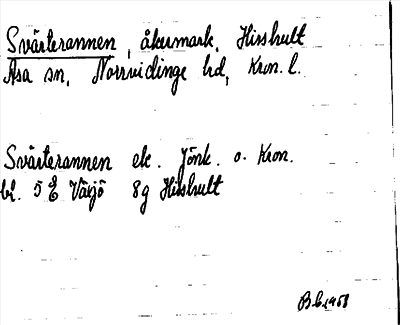 Svärterannen, åkermark, Hirshult
Asa sn, Norrvidinge hd, Kron. l.
Svärterannen ek. Jönk. o. Kron.
bl. 5 E Växjö 8g Hirshult